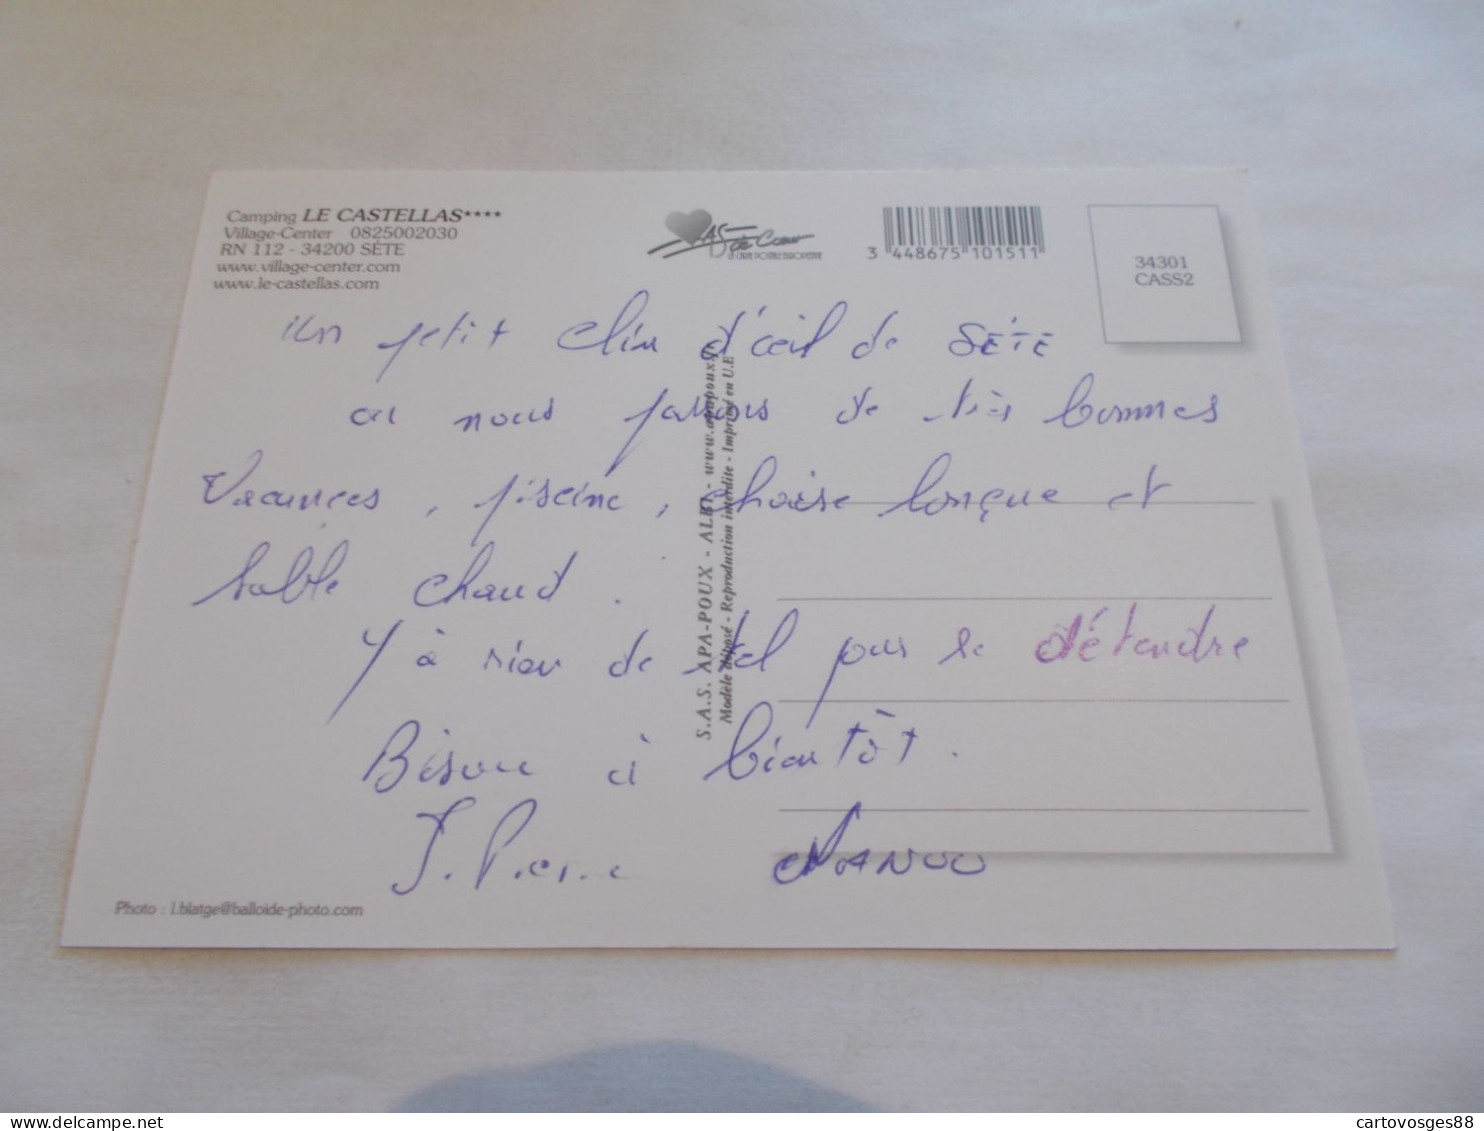 Camping LE CASTELLAS****
Village-Center 0825002030
RN 112 - 34200 SÈTE
www.village-center.com
www.le-castellas.com
AS de Cœur
LA CARTE POSTALE EUROPEENNE
3 448675 101511
34301
CASS2
un petit clin d'œil de SÉTE
ou nous passons de très bonnes
Vacances, piscine, chaise longue et
sable chaud.
Y à rien de tel pour se détendre
Bisou à bientôt.
J. Pierre NANOU
S.A.S. APA-POUX - ALBI - www.apapoux.fr
Modèle déposé - Reproduction interdite - Imprimé en U.E
Photo : l.blatge@balloide-photo.com
cartovosges88